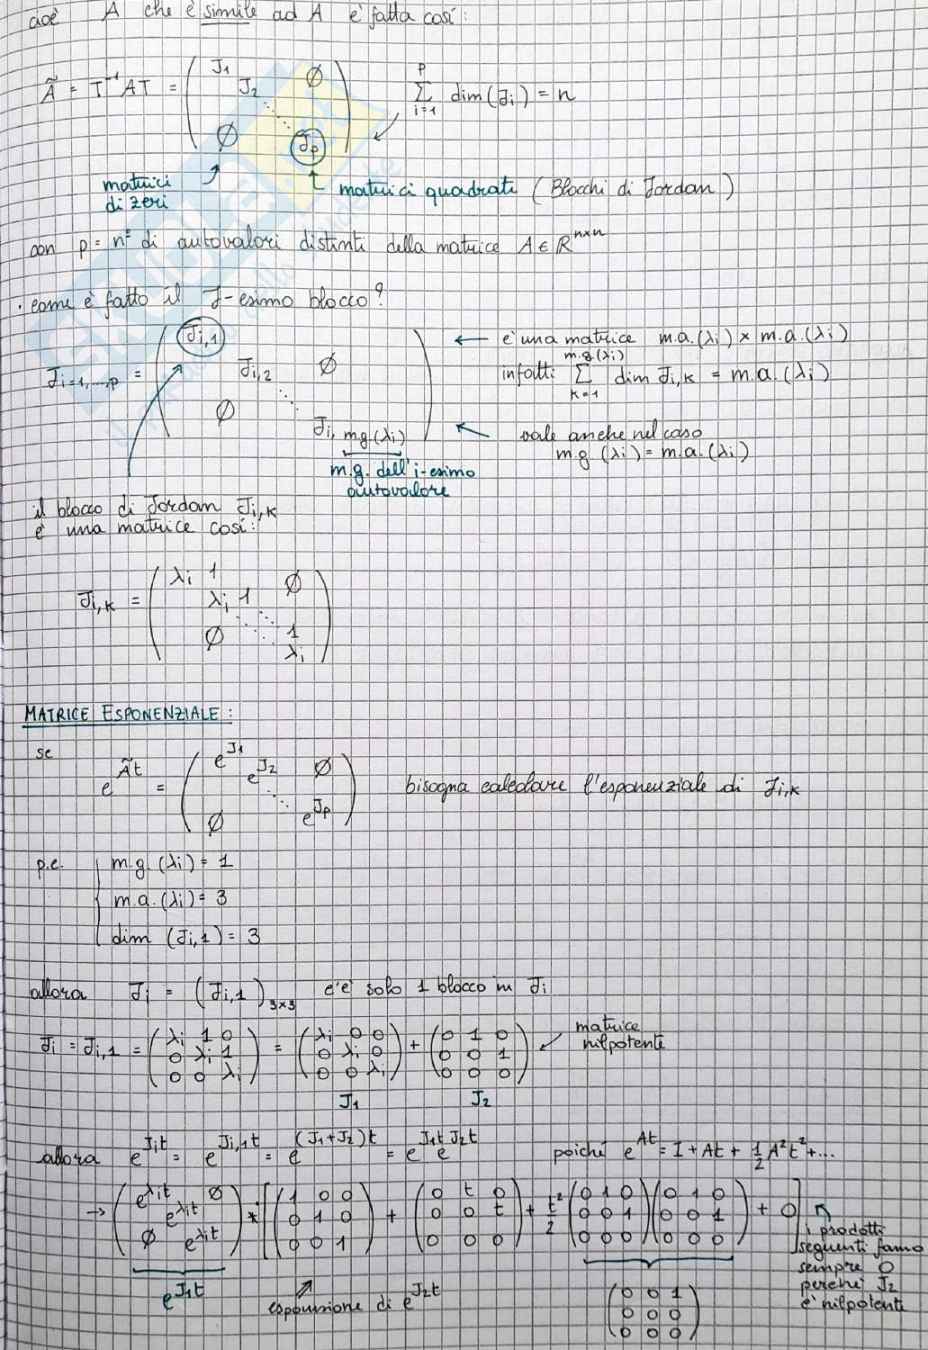 cioè Ã che è simile ad A è fatta così:
Ã = T⁻¹AT = ( J₁ J₂ ⋱ Jp ∅ ∅ ) ∑ᵢ₌₁ᵖ dim(Ji) = n
matrici di zeri
matrici quadrate (Blocchi di Jordan)
con p = n° di autovalori distinti della matrice A ∈ R^{n×n}
· come è fatto il J-esimo blocco?
J_{i=1,...,p} = ( J_{i,1} J_{i,2} ⋱ J_{i, mg(λi)} ∅ ∅ )
← è una matrice m.a.(λi) × m.a.(λi)
infatti ∑_{k=1}^{m.g.(λi)} dim J_{i,k} = m.a.(λi)
← vale anche nel caso
m.g.(λi) = m.a.(λi)
m.g. dell'i-esimo
autovalore
il blocco di Jordan J_{i,k}
è una matrice così:
J_{i,k} = ( λi 1 ∅
λi 1
∅ ⋱ 1
λi )
MATRICE ESPONENZIALE:
se
e^{Ãt} = ( e^{J₁} e^{J₂} ⋱ e^{Jp} ∅ ∅ ) bisogna calcolare l'esponenziale di J_{i,k}
p.e. m.g.(λi) = 1
m.a.(λi) = 3
dim (J_{i,1}) = 3
allora Ji = (J_{i,1})_{3×3} c'è solo 1 blocco in Ji
Ji = J_{i,1} = ( λi 1 0 / 0 λi 1 / 0 0 λi ) = ( λi 0 0 / 0 λi 0 / 0 0 λi ) + ( 0 1 0 / 0 0 1 / 0 0 0 ) matrice nilpotente
J₁ J₂
allora e^{Jit} = e^{J_{i,1}t} = e^{(J₁+J₂)t} = e^{J₁t} e^{J₂t} poiché e^{At} = I + At + ½A²t² + ...
→ ( e^{λit} ∅ / e^{λit} / ∅ e^{λit} ) * [ ( 1 0 0 / 0 1 0 / 0 0 1 ) + ( 0 t 0 / 0 0 t / 0 0 0 ) + t²/2 ( 0 1 0 / 0 0 1 / 0 0 0 ) ( 0 1 0 / 0 0 1 / 0 0 0 ) + 0 ]
e^{J₁t}
espansione di e^{J₂t}
( 0 0 1 / 0 0 0 / 0 0 0 )
i prodotti
seguenti fanno
sempre 0
perché J₂
è nilpotente